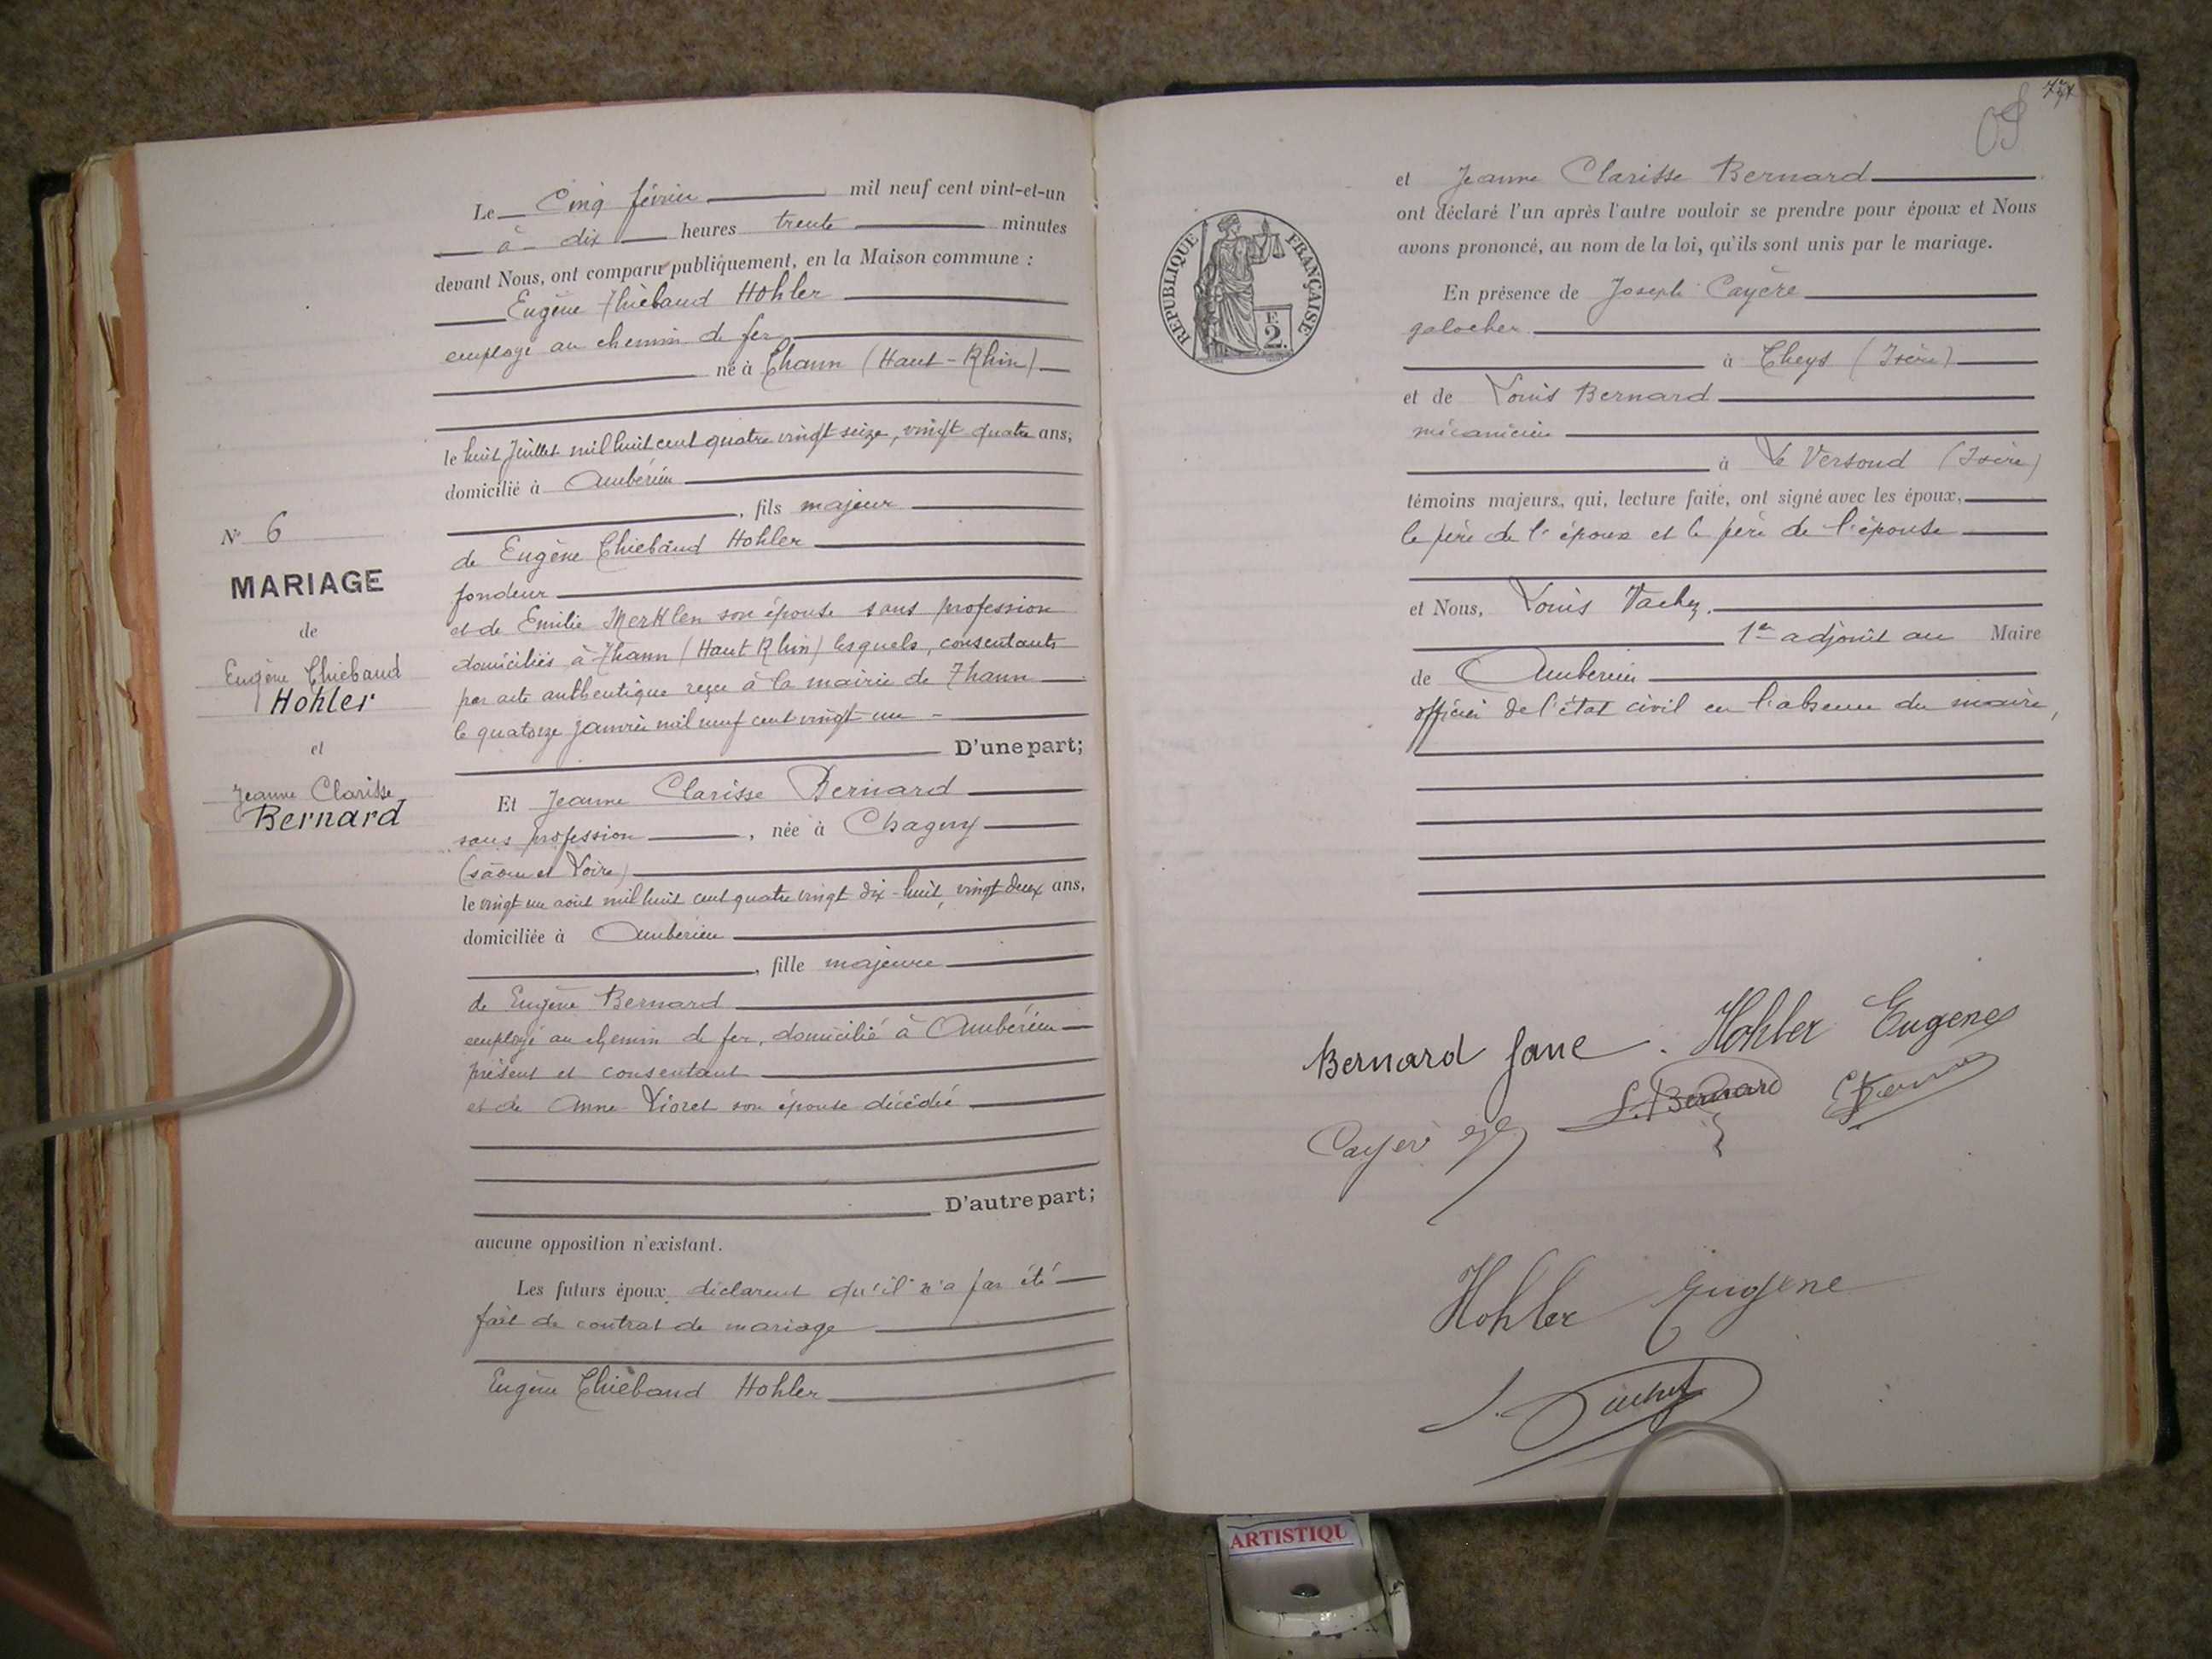 Le Cinq février mil neuf cent vint-et-un
à dix heures trente minutes
devant Nous, ont comparu publiquement, en la Maison commune :
Eugène Thiébaud Hohler
employé au chemin de fer
né à Thann (Haut-Rhin)
le huit Juillet mil huit cent quatre vingt seize, vingt quatre ans,
domicilié à Ambérieu
, fils majeur
de Eugène Thiébaud Hohler
fondeur
et de Emilie Merklen son épouse sans profession
domiciliés à Thann (Haut Rhin) lesquels, consentants
par acte authentique reçu à la mairie de Thann
le quatorze janvier mil neuf cent vingt un
D'une part;
N° 6
MARIAGE
de
Eugène Thiébaud
Hohler
et
Jeanne Clarisse
Bernard
Et Jeanne Clarisse Bernard
sans profession , née à Chagny
(Saône et Loire)
le vingt un août mil huit cent quatre vingt dix-huit, vingt deux ans,
domiciliée à Ambérieu
, fille majeure
de Eugène Bernard
employé au chemin de fer, domicilié à Ambérieu
présent et consentant
et de Anne Lioret son épouse décédée
D'autre part;
aucune opposition n'existant.
Les futurs époux déclarent qu'il n'a pas été
fait de contrat de mariage
Eugène Thiébaud Hohler
et Jeanne Clarisse Bernard
ont déclaré l'un après l'autre vouloir se prendre pour époux et Nous
avons prononcé, au nom de la loi, qu'ils sont unis par le mariage.
RÉPUBLIQUE FRANÇAISE
F.
2.
En présence de Joseph Cayère
galocher
à Theys (Isère)
et de Louis Bernard
mécanicien
à Le Versoud (Isère)
témoins majeurs, qui, lecture faite, ont signé avec les époux,
le père de l'époux et le père de l'épouse
et Nous, Louis Tachy
1er adjoint au Maire
de Ambérieu
officier de l'état civil en l'absence du maire,
Bernard Jane . Hohler Eugene
L. Bernard
Hohler Eugene
ARTISTIQU